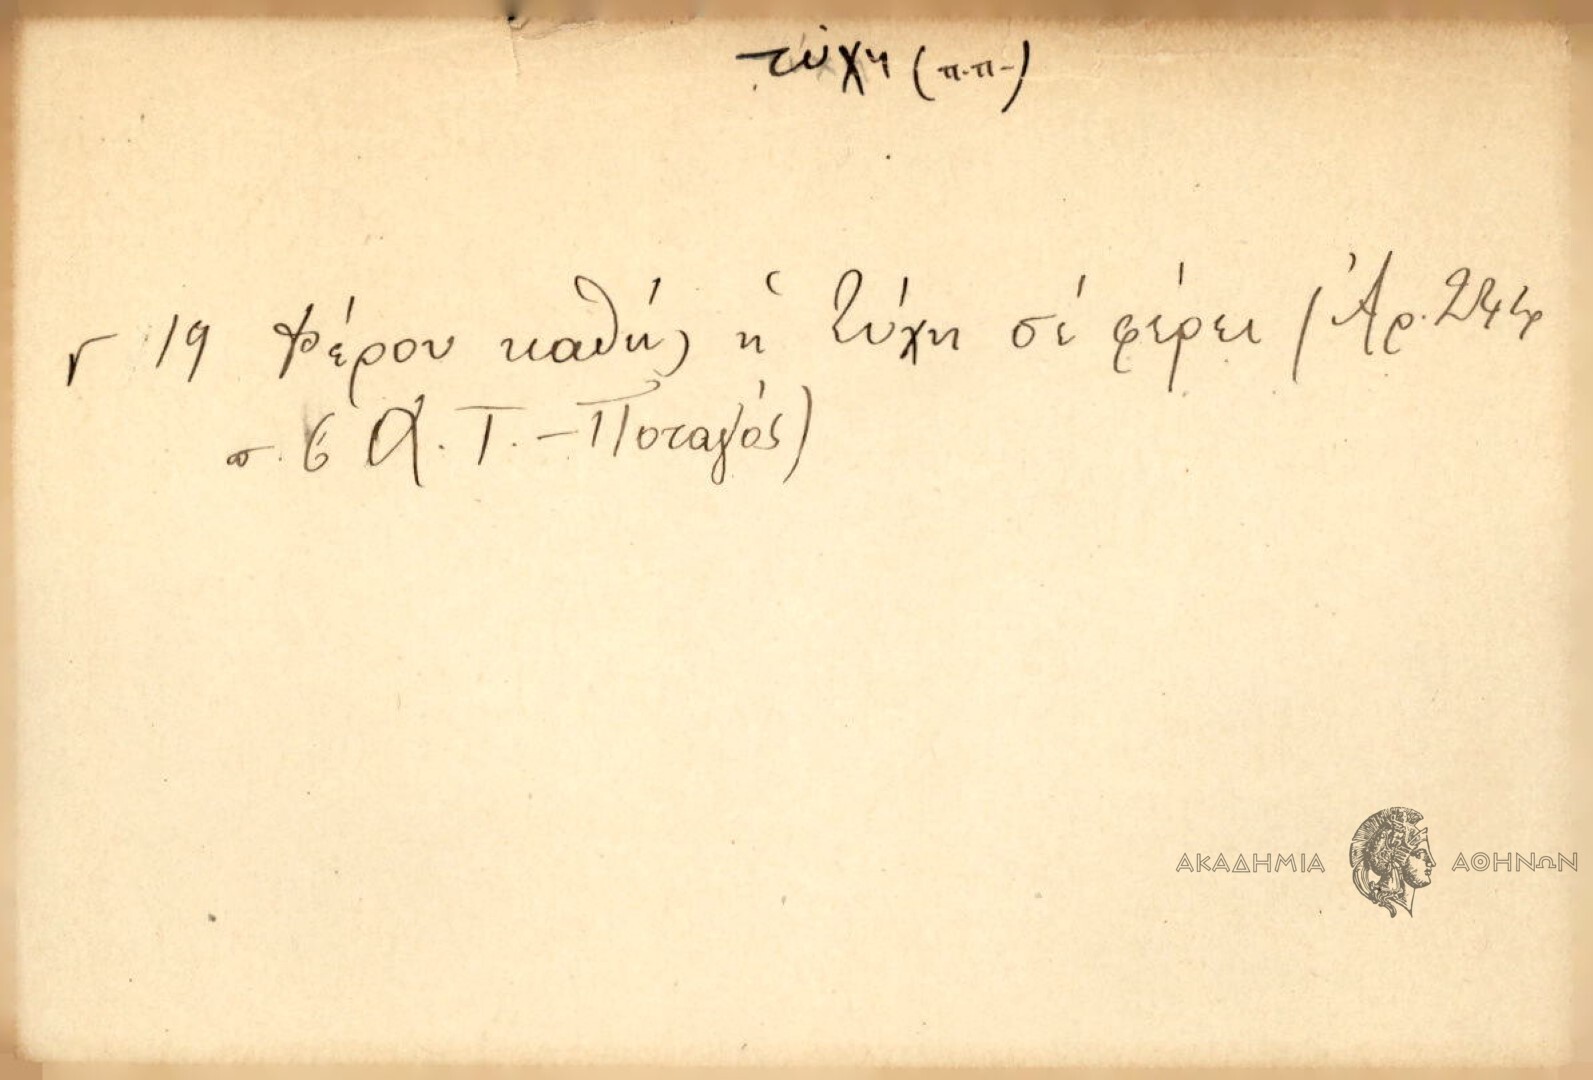 τύχη (π.π-)
γ 19 Φέρου καθώς ἡ Τύχη σέ φέρει (Ἀρ. 244
σ. 6 Α. Τ. – Ποταγός)
ΑΚΑΔΗΜΙΑ ΑΘΗΝΩΝ